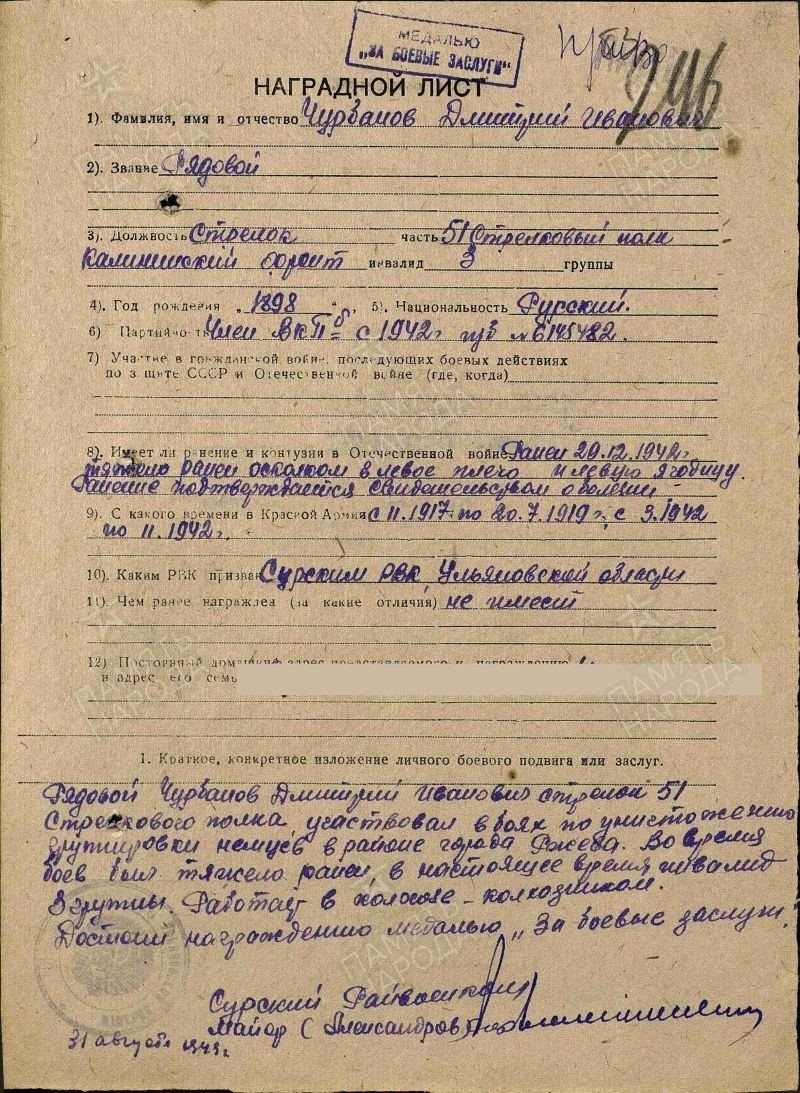 МЕДАЛЬЮ
„ЗА БОЕВЫЕ ЗАСЛУГИ"
246
НАГРАДНОЙ ЛИСТ
1). Фамилия, имя и отчество Чурбанов Дмитрий Иванович
2). Звание Рядовой
3). Должность Стрелок часть 51 Стрелковый полк
Калининский фронт инвалид 3 группы
4). Год рождения „1898" 5). Национальность Русский.
6) Партийность Член ВКПб с 1942г п/б №6145482.
7) Участие в гражданской войне, последующих боевых действиях
по защите СССР и Отечественной войне (где, когда)
8). Имеет ли ранение и контузии в Отечественной войне Ранен 29.12.1942г.
тяжело ранен осколком в левое плечо и левую ягодицу.
Ранение подтверждается свидетельством о болезни
9). С какого времени в Красной Армии с 11.1917 по 20.7.1919г. с 3.1942
по 11.1942г.
10). Каким РВК призван Сурским РВК, Ульяновской области
11). Чем ранее награжден (за какие отличия) не имеет
12) Постоянный домашний адрес представляемого к награждению
и адрес его семь
1. Краткое, конкретное изложение личного боевого подвига или заслуг.
Рядовой Чурбанов Дмитрий Иванович стрелок 51
Стрелкового полка участвовал в боях по унистожению
групировки немцев в районе города Ржева. Во время
боев был тяжело ранен, в настоящее время инвалид
3 группы. Работает в колхозе – колхозником.
Достоин награждению медалью „За боевые заслуги".
Сурский Райвоенком
Майор (Александров)
31 августа 194 г.
ПАМЯТЬ НАРОДА